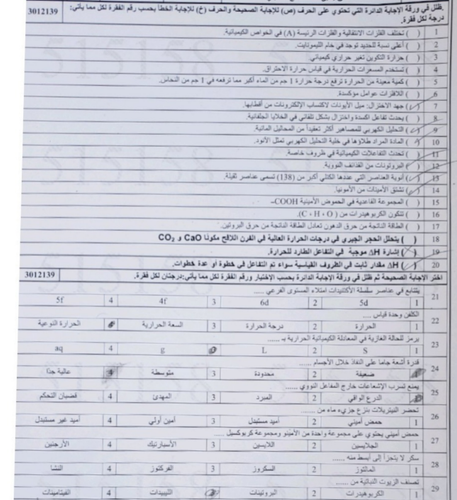 ظلل في ورقة الإجابة الدائرة التي تحتوي على الحرف (ص) للإجابة الصحيحة والحرف (خ) للإجابة الخطأ بحسب رقم الفقرة لكل مما يأتي: 3012139
درجة لكل فقرة.
1 ( ) تختلف الفلزات الانتقالية والفلزات الرئيسة (A) في الخواص الكيميائية.
2 ( ) أعلى نسبة للحديد توجد في خام الليمونايت.
3 ( ) حرارة التكوين تغير حراري كيميائي.
4 ( ) تستخدم المسعرات الحرارية في قياس حرارة الاحتراق.
5 ( ) كمية معينة من الحرارة ترفع درجة حرارة 1 جم من الماء أكبر مما ترفعه في 1 جم من النحاس.
6 ( ) اللافلزات عوامل مؤكسدة.
7 ( ) جهد الاختزال: ميل الأيونات لاكتساب الإلكترونات من أقطابها.
8 ( ) يحدث تفاعل أكسدة واختزال بشكل تلقائي في الخلايا الجلفانية.
9 ( ) التحليل الكهربي للمصاهير أكثر تعقيدا من المحاليل المائية.
10 ( ) المادة المراد طلاؤها في خلية التحليل الكهربي تمثل الأنود.
11 ( ) تحدث التفاعلات الكيميائية في ظروف خاصة.
12 ( ) البروتونات من القذائف النووية.
13 ( ) أنوية العناصر التي عددها الكتلي أكبر من (138) تسمى عناصر ثقيلة.
14 ( ) تشتق الأمينات من الأمونيا.
15 ( ) المجموعة القاعدية في الحموض الأمينية COOH-
16 ( ) تتكون الكربوهيدرات من ( C ، H ، O ).
17 ( ) الطاقة الناتجة من حرق الدهون تعادل الطاقة الناتجة من حرق البروتين.
18 ( ) يتحلل الحجر الجيري في درجات الحرارة العالية في الفرن اللافح مكونا CaO و CO₂
19 ( ) إشارة ΔH موجبة في التفاعل الطارد للحرارة.
20 ( ) ΔH مقدار ثابت في الظروف القياسية سواء تم التفاعل في خطوة أو عدة خطوات.
اختر الإجابة الصحيحة ثم ظلل في ورقة الإجابة الدائرة بحسب الاختيار ورقم الفقرة لكل مما يأتي: درجتان لكل فقرة. 3012139
21 يتتابع في عناصر سلسلة الأكتنيدات امتلاء المستوى الفرعي ....
5d 2 6d 3 4f 4 5f
22 الكلفن وحدة قياس ....
الحرارة 2 درجة الحرارة 3 السعة الحرارية الحرارة النوعية
23 يرمز للحالة الغازية في المعادلة الكيميائية الحرارية بـ ....
S 2 L g 4 aq
24 قدرة أشعة جاما على النفاذ خلال الأجسام ....
ضعيفة 2 محدودة 3 متوسطة عالية جدًا
25 يمنع تسرب الإشعاعات خارج المفاعل النووي ....
الدرع الواقي 2 المبرد 3 المهدئ 4 قضبان التحكم
26 تحضر النيتريلات بنزع جزيء ماء من ....
حمض أميني 2 أميد مستبدل 3 أمين أولي 4 أميد غير مستبدل
27 حمض أميني يحتوي على مجموعة واحدة من الأمينو ومجموعة كربوكسيل
الجلايسين 2 اللايسين 3 الأسبارتيك 4 الأرجنين
28 سكر لا يتجزأ إلى أبسط منه ....
المالتوز 2 السكروز 3 الفركتوز 4 النشا
29 تصنف الزيوت النباتية من ....
الكربوهيدرات 2 البروتينات الليبيدات 4 الفيتامينات